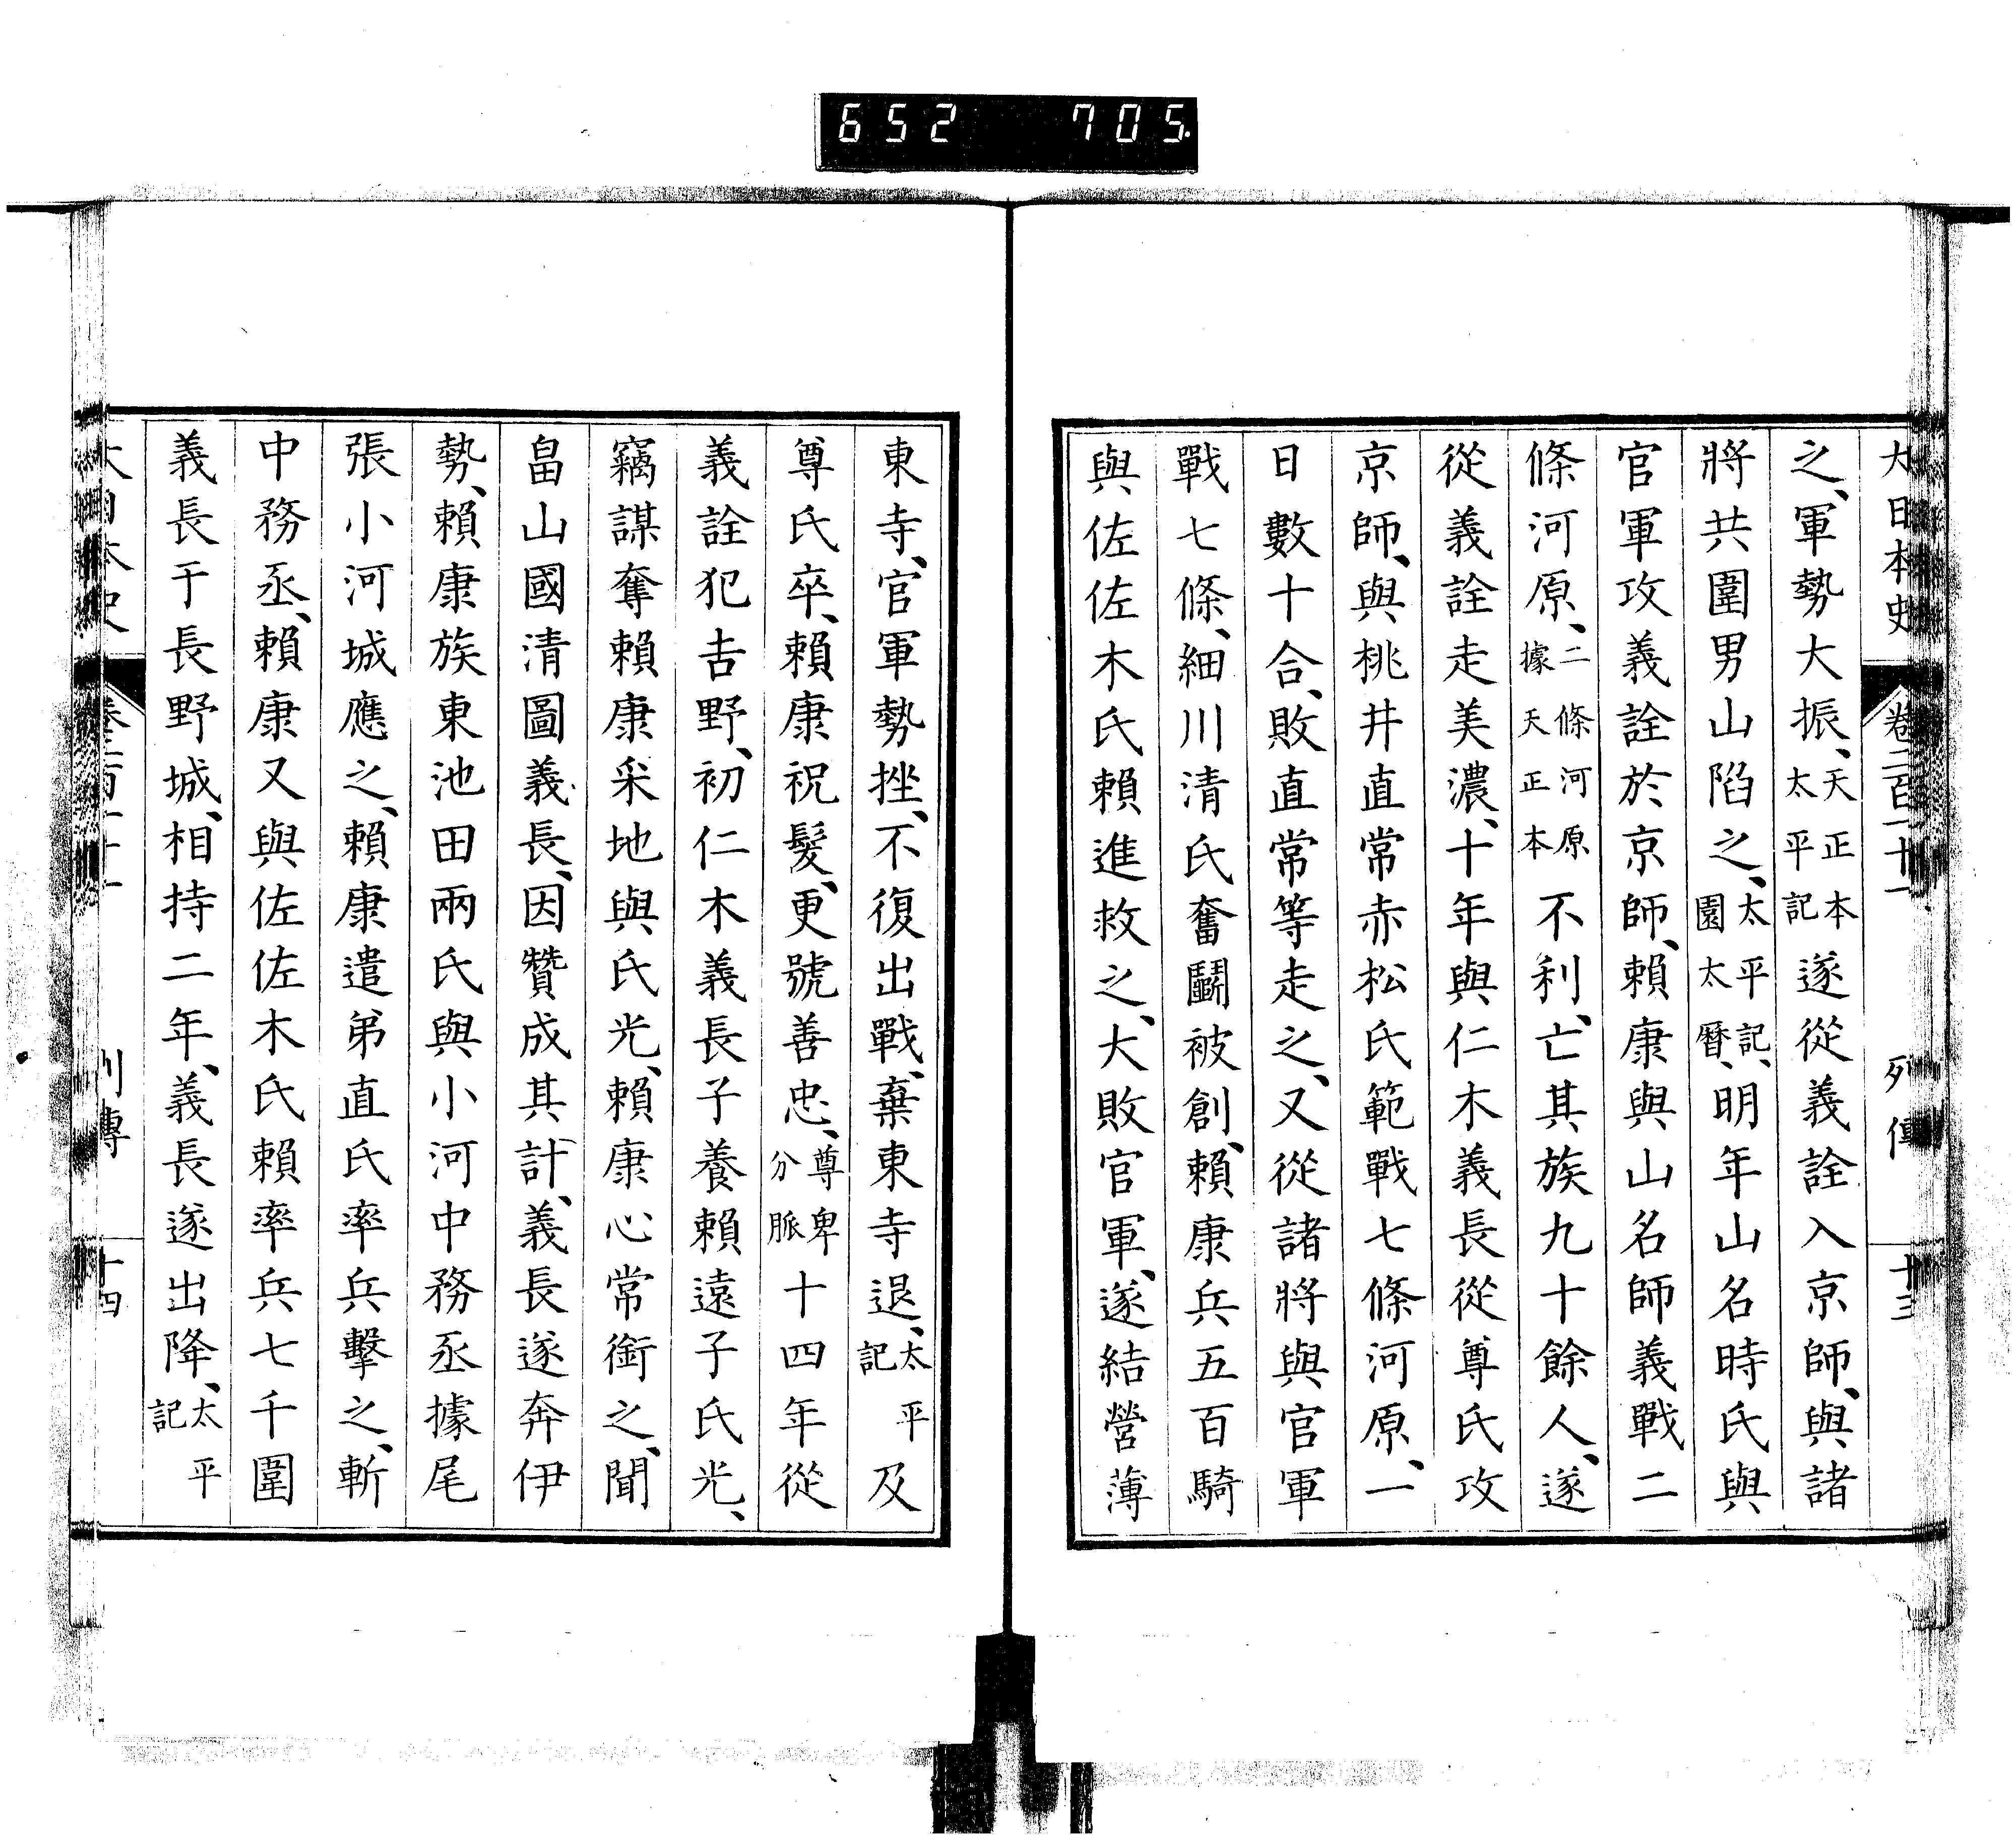 652 705
大日本史 卷二百二十一 列傳 十三
之、軍勢大振、天正本太平記遂從義詮入京師、與諸
將共圍男山陷之、太平記、園太曆、明年山名時氏與
官軍攻義詮於京師、賴康與山名師義戰二
條河原、二條河原據天正本不利、亡其族九十餘人、遂
從義詮走美濃、十年與仁木義長從尊氏攻
京師、與桃井直常赤松氏範戰七條河原、一
日數十合、敗直常等走之、又從諸將與官軍
戰七條、細川清氏奮鬭被創、賴康兵五百騎
與佐佐木氏賴進救之、大敗官軍、遂結營薄
東寺、官軍勢挫、不復出戰、棄東寺退、太平記及
尊氏卒、賴康祝髮、更號善忠、尊卑分脈十四年從
義詮犯吉野、初仁木義長子養賴遠子氏光、
竊謀奪賴康采地與氏光、賴康心常銜之、聞
畠山國清圖義長、因贊成其計、義長遂奔伊
勢、賴康族東池田兩氏與小河中務丞據尾
張小河城應之、賴康遣弟直氏率兵擊之、斬
中務丞、賴康又與佐佐木氏賴率兵七千圍
義長于長野城、相持二年、義長遂出降、太平記
列傳 十四